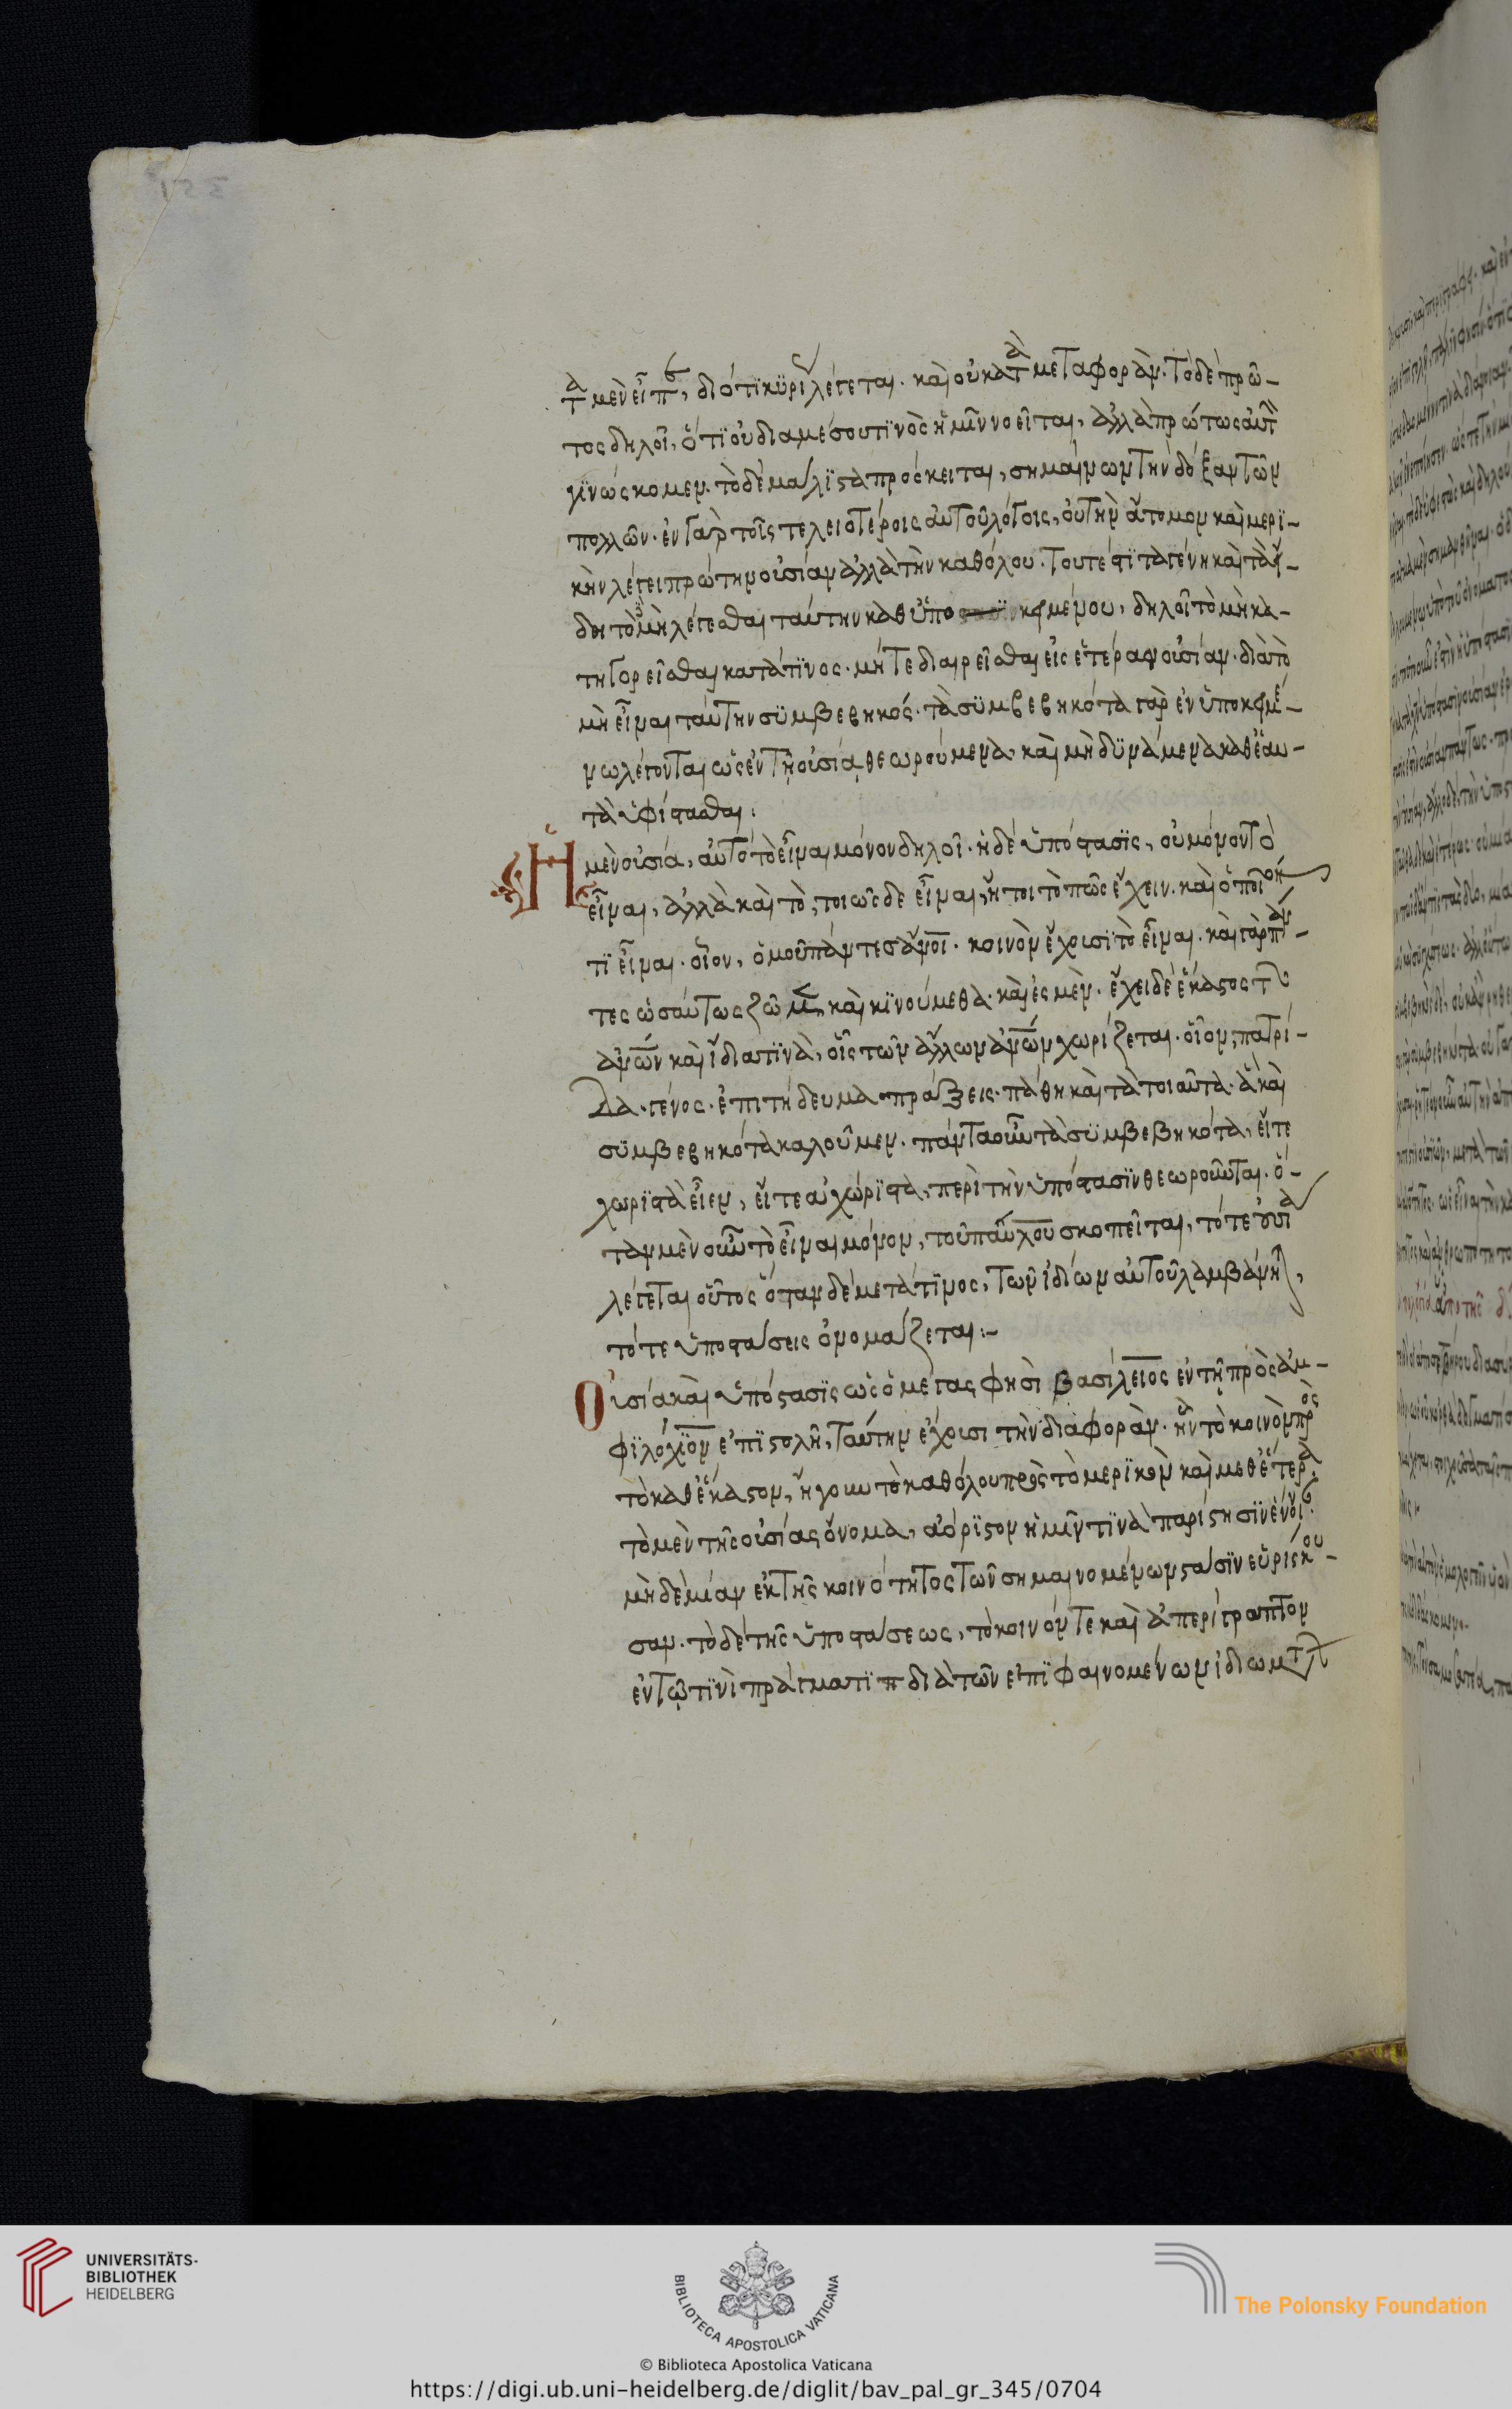 τὰ μὲν εἶπε, διότϊ κϋρίως λέγεται. καὶ οὐ κατὰ μεταφοράν. τὸ δὲ πρώ-
τος δηλοῖ, ὅτϊ οὐ διαμέσου τϊνὸς ἡμῖν νοεῖται, ἀλλὰ πρώτως αὐτὴν
γϊνώσκομεν. τὸ δὲ μάλϊστα πρόσκειται, σημαίνων τὴν δόξαν τῶν
πολλῶν. ἐν γὰρ τοῖς τελειοτέροις αὐτοῦ λόγοις, οὐ τὴν ἄτομον καὶ μερϊ-
κὴν λέγει πρώτην οὐσίαν ἀλλὰ τὴν καθόλου. τουτέστϊ τὰ γένη καὶ τὰ εἴ-
δη τὸ δὲ μὴ λέγεσθαι ταύτην καθ ὑποκειμένου, δηλοῖ τὸ μὴ κα-
τηγορεῖσθαι κατά τϊνος. μήτε διαιρεῖσθαι εἰς ἑτέραν οὐσίαν. διὰ τὸ
μὴ εἶναι ταύτην σϋμβεβηκός. τὰ σϋμβεβηκότα γὰρ ἐν ὑποκειμέ-
νω λέγονται ὡς ἐν τῇ οὐσίᾳ θεωρούμενα, καὶ μὴ δϋνάμενα καθ ἑαυ-
τὰ ὑφίστασθαι:
Ἡ μὲν οὐσία, αὐτὸ τὸ εἶναι μόνον δηλοῖ. ἡ δὲ ὑπόστασϊς, οὐ μόνον τὸ
εἶναι, ἀλλὰ καὶ τὸ, τοιῶσδε εἶναι, ἤτοι τὸ πῶς ἔχειν. καὶ ὁποῖον
τϊ εἶναι. οἷον, ὁμοῦ πάντες ἄνοι. κοινὸν ἔχουσϊ τὸ εἶναι. καὶ γὰρ πάν-
τες ὡσαύτως ζῶμεν, καὶ κϊνούμεθα. καὶ ἐσμέν. ἔχει δὲ ἕκαστος τῶν
ἀνῶν καὶ ἴδια τϊνὰ, οἷς τῶν ἄλλων ἀνῶν χωρίζεται. οἷον, πατρί-
δα. γένος. ἐπιτήδευμα. πράξεις. πάθη καὶ τὰ τοιαῦτα. ἃ καὶ
σϋμβεβηκότα καλοῦμεν. πάντα οὖν τὰ σϋμβεβηκότα, εἴτε
χωρϊστὰ εἶεν, εἴτε ἀχώρϊστα, περὶ τὴν ὑπόστασϊν θεωροῦνται. ὅ-
ταν μὲν οὖν τὸ εἶναι μόνον, τοῦ παύλου σκοπεῖται, τότε οὐσία
λέγεται οὗτος ὅταν δὲ μετά τϊνος, τῶν ἰδίων αὐτοῦ λαμβάνηται,
τότε ὑποστάσεις ὀνομάζεται:-
Οὐσία καὶ ὑπόστασϊς ὡς ὁ μέγας φησὶ βασίλειος ἐν τῇ πρὸς ἀμ-
φϊλόχϊον ἐπϊστολῆ, ταύτην ἔχουσι τὴν διαφοράν. ἣν τὸ κοινὸν πρὸς
τὸ καθ ἕκαστον, ἤγουν τὸ καθόλου πρὸς τὸ μερϊκὸν καὶ μεθ ἕτερα.
τὸ μὲν τῆς οὐσίας ὄνομα, ἀόρϊστον ἡμῖν τϊνὰ παρίστησϊν ἔννοιαν.
μηδὲ μίαν ἐκ τῆς κοινότητος τῶν σημαινομένων στάσϊν εὑρίσκου-
σαν. τὸ δὲ τῆς ὑποστάσεως, τὸ κοινόν τε καὶ ἀπερίγραπτον
ἐν τῷ τϊνὶ πράγματϊ π διὰ τῶν ἐπϊφαινομένων ἰδιωμάτων
UNIVERSITÄTS-
BIBLIOTHEK
HEIDELBERG
BIBLIOTECA APOSTOLICA VATICANA
The Polonsky Foundation
© Biblioteca Apostolica Vaticana
https://digi.ub.uni-heidelberg.de/diglit/bav_pal_gr_345/0704